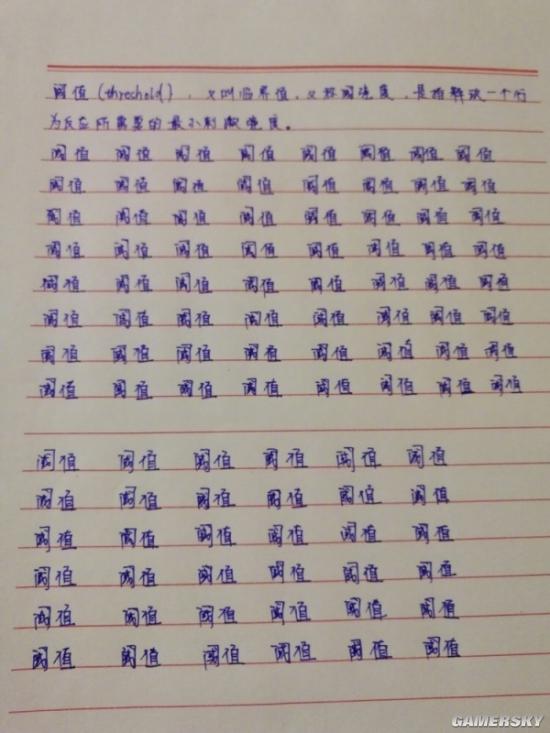 阈值(threshold),又叫临界值,又称阈强度,是指释放一个行
为反应所需要的最小刺激强度。
阈值 阈值 阈值 阈值 阈值 阈值 阈值 阈值
阈值 阈值 阈值 阈值 阈值 阈值 阈值 阈值
阈值 阈值 阈值 阈值 阈值 阈值 阈值 阈值
阈值 阈值 阈值 阈值 阈值 阈值 阈值 阈值
阈值 阈值 阈值 阈值 阈值 阈值 阈值 阈值
阈值 阈值 阈值 阈值 阈值 阈值 阈值 阈值
阈值 阈值 阈值 阈值 阈值 阈值 阈值 阈值
阈值 阈值 阈值 阈值 阈值 阈值 阈值 阈值
阈值 阈值 阈值 阈值 阈值 阈值
阈值 阈值 阈值 阈值 阈值 阈值
阈值 阈值 阈值 阈值 阈值 阈值
阈值 阈值 阈值 阈值 阈值 阈值
阈值 阈值 阈值 阈值 阈值 阈值
阈值 阈值 阈值 阈值 阈值 阈值
GAMERSKY